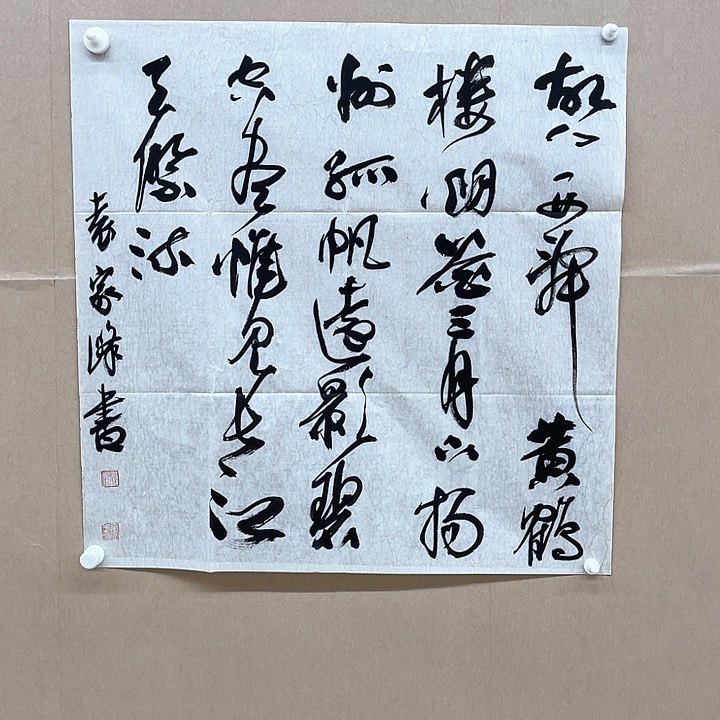 故人西辭黃鶴
樓烟花三月下揚
州孤帆遠影碧
空盡惟見長江
天際流
袁家書